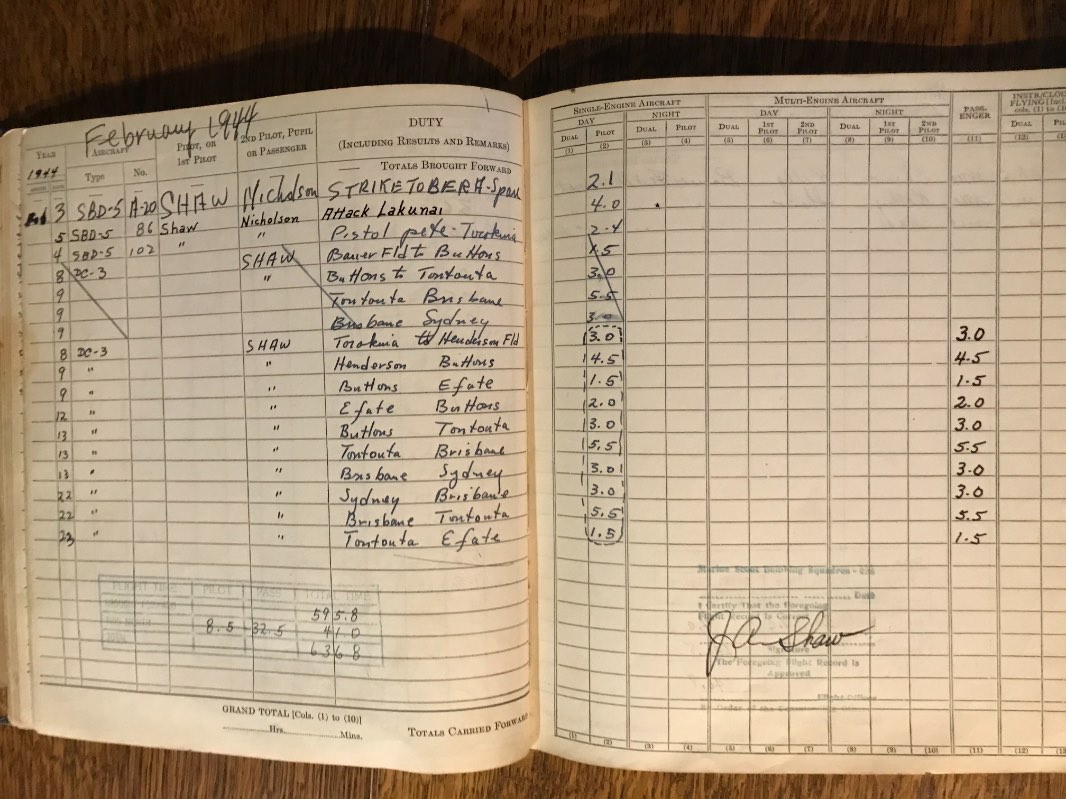 February 1944
YEAR AIRCRAFT PILOT, OR 1ST PILOT 2ND PILOT, PUPIL OR PASSENGER DUTY (INCLUDING RESULTS AND REMARKS)
1944 Type No. TOTALS BROUGHT FORWARD
SINGLE-ENGINE AIRCRAFT MULTI-ENGINE AIRCRAFT PASS-ENGER
DAY NIGHT DAY NIGHT
DUAL PILOT DUAL PILOT DUAL 1ST PILOT 2ND PILOT DUAL 1ST PILOT 2ND PILOT DUAL
(1) (2) (3) (4) (5) (6) (7) (8) (9) (10) (11) (12)
3 SBD-5 A-20 SHAW Nicholson STRIKE TOBERA- 2.1
5 SBD-5 86 Shaw Nicholson Attack Lakunai 4.0
4 SBD-5 102 " " Pistol pete- Torokina 2.4
8 DC-3 SHAW Bauer Fld to Buttons 1.5
9 " Buttons to Tontouta 3.0
9 Tontouta Brisbane 5.5
9 Brisbane Sydney 3.0
8 DC-3 SHAW Torokina to Henderson Fld 3.0 3.0
9 " " Henderson Buttons 4.5 4.5
9 " " Buttons Efate 1.5 1.5
12 " " Efate Buttons 2.0 2.0
13 " " Buttons Tontouta 3.0 3.0
13 " " Tontouta Brisbane 5.5 5.5
13 " " Brisbane Sydney 3.0 3.0
22 " " Sydney Brisbane 3.0 3.0
22 " " Brisbane Tontouta 5.5 5.5
23 " " Tontouta Efate 1.5 1.5
FLIGHT TIME PILOT PASS TOTAL TIME
595.8
8.5 32.5 41 0
636 8
Marine Scout Bombing Squadron
Date
I Certify That the Foregoing
Flight Record is Correct
J A Shaw
Signature
The Foregoing Flight Record is
Approved
Flight Officer
By Order of the Commanding
GRAND TOTAL [Cols. (1) to (10)]
Hrs. Mins. TOTALS CARRIED FORWARD
(1) (2) (3) (4) (5) (6) (7) (8) (9) (10) (11) (12)